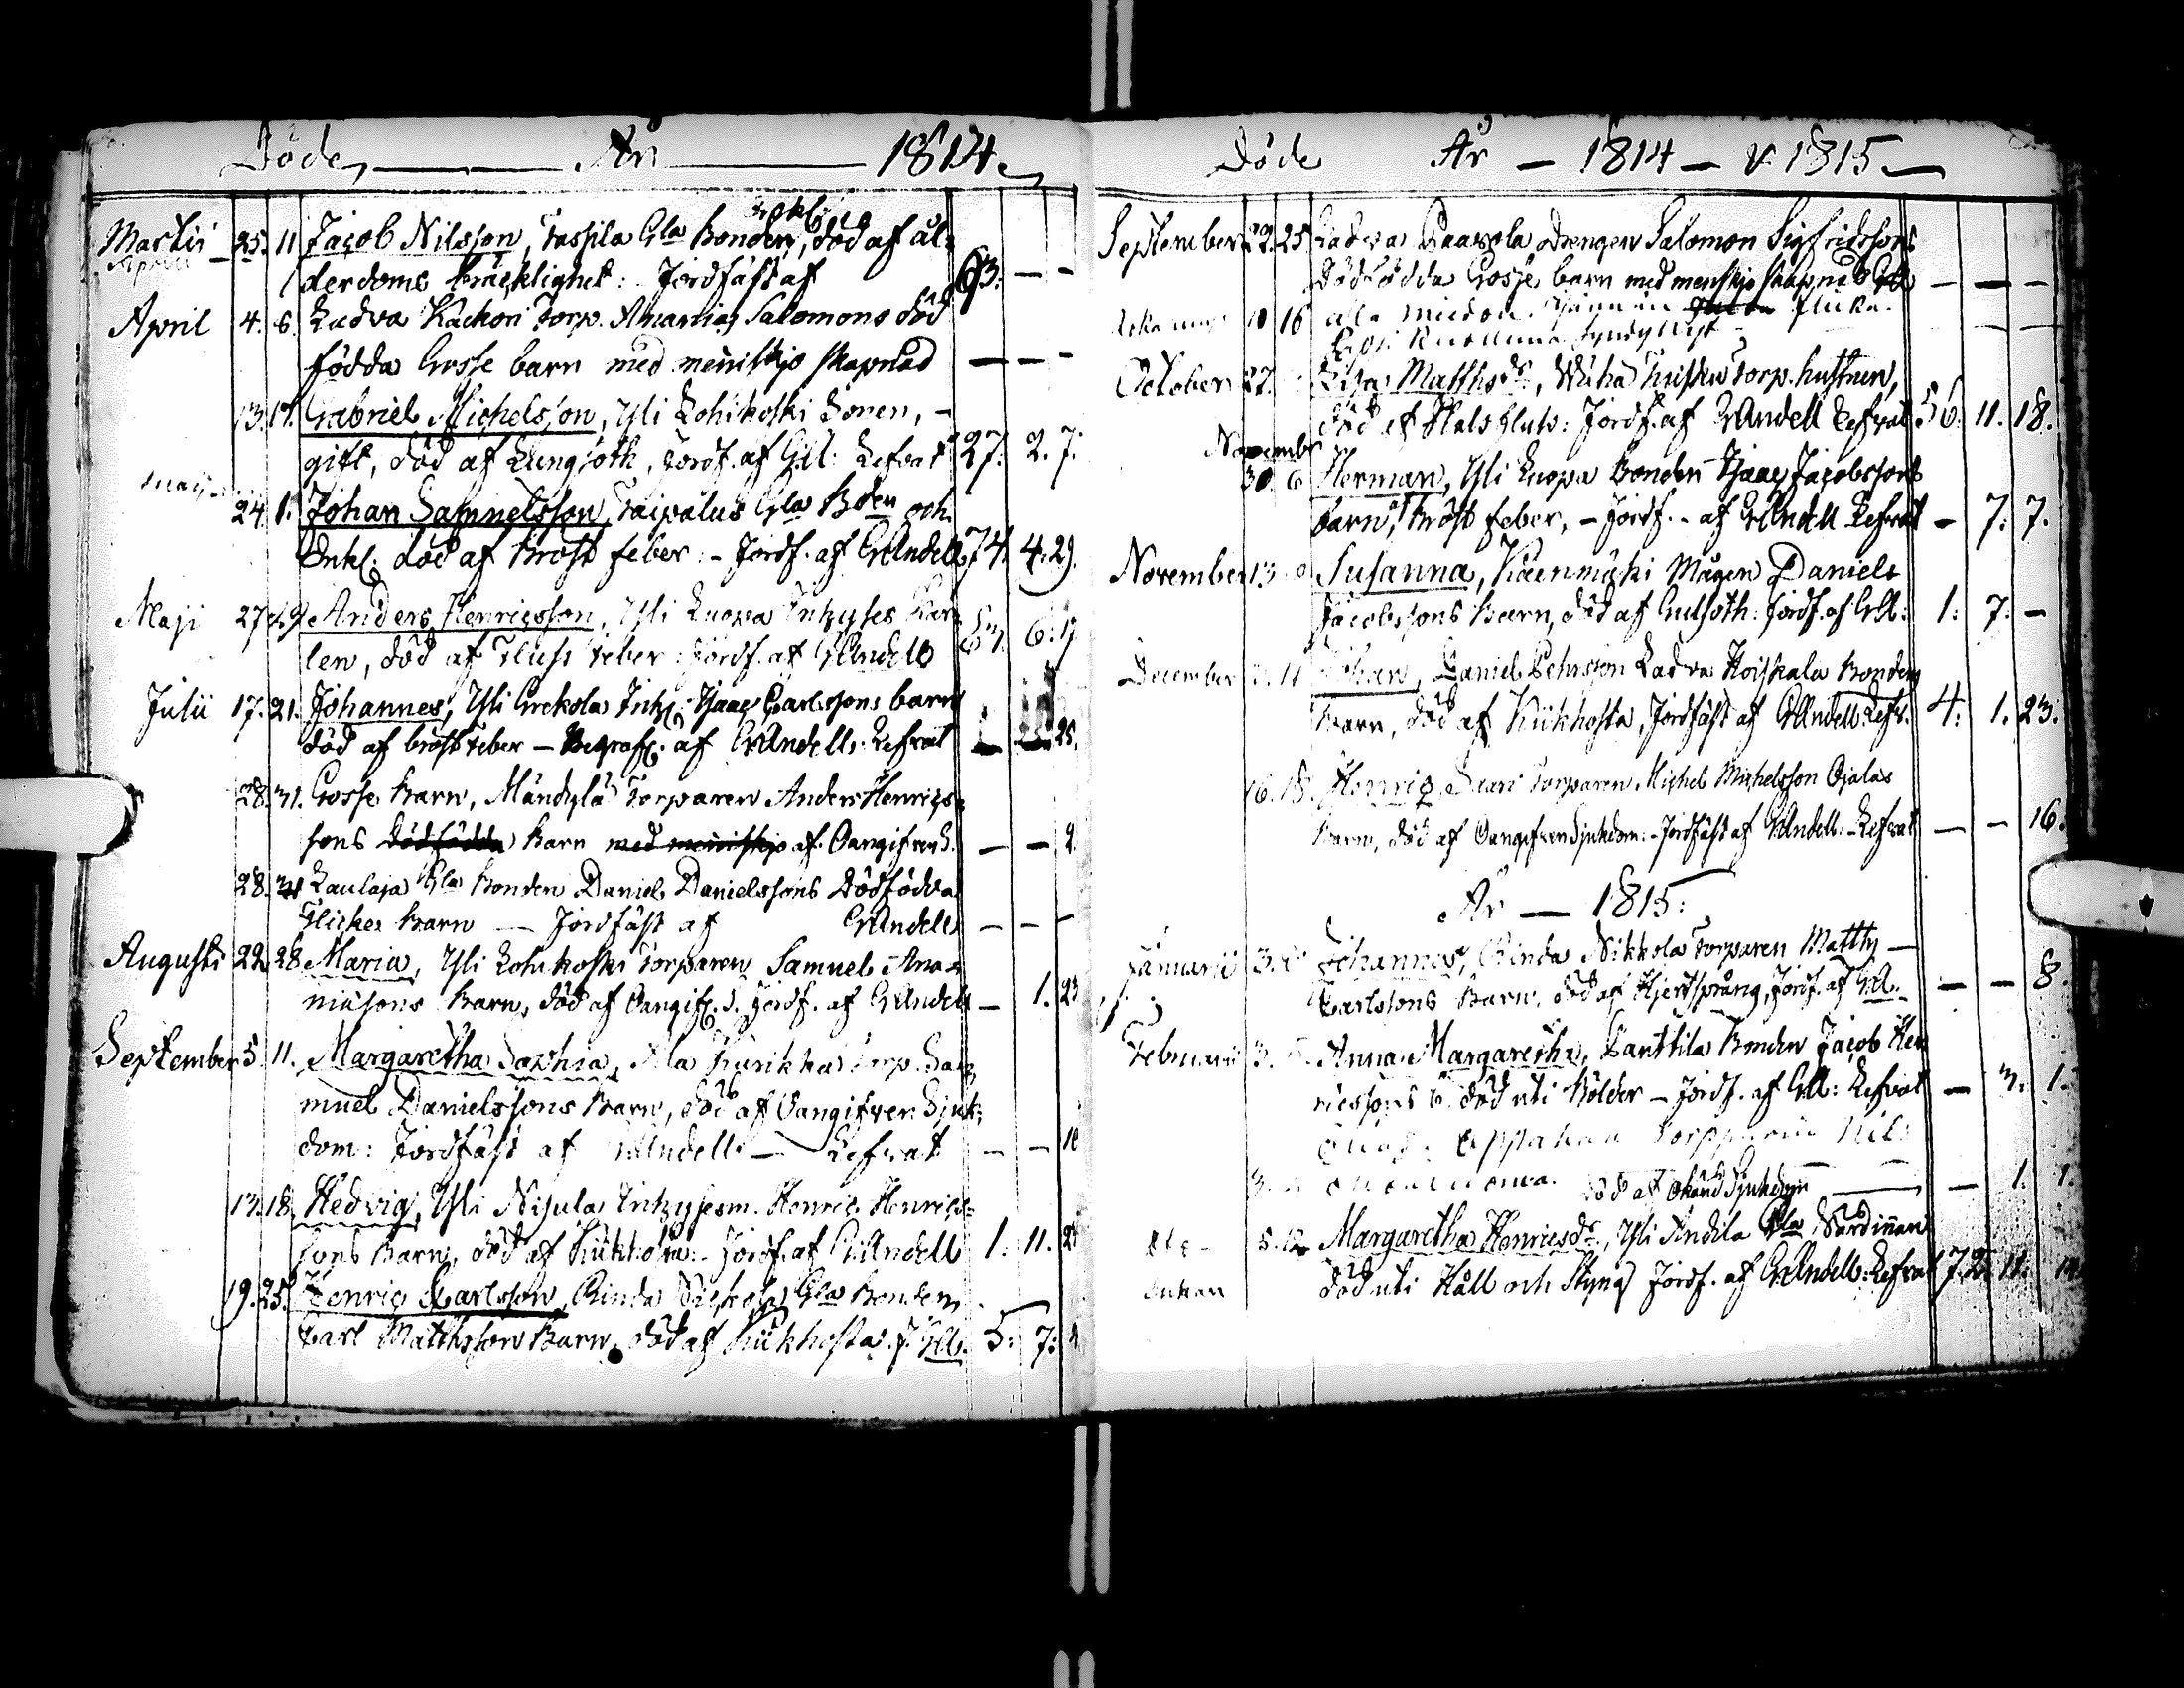 Döde År 1814
Martii 25. 11 Jacob Nilsson, Passila Gla Bonden, död af ål-
Aprill derdoms bräcklighet: Jordfäst af 63. — —
April 4. 6. Ladva Kachori Torp. Ananias Salomons död
födda Gosse barn med menniskjo skapnad — — —
13. 17. Gabriel Michelsson, Yli Lohikoski Sonen, —
gift, död af Lungsoth, Jordf. af GA: Lefvat 27. 2. 7.
24. 1. Johan Samuelsson, Taipalus Gla Bden och
Enkl: död af Bröst feber: – Jordf. af GAndell 74. 4. 29.
Maji 27. 29 Anders Henricsson, Yli Luopa Inhyses Kar-
len, död af Fluss feber: Jordf. af GAndell 6: 19
Julii 17. 21. Johannes, Yli Grekola Inh: Isaac Carlssons barn
död af bröstfeber — Begrafs: af GAndell: Lefvat — 25.
28. 31. Gosse Barn, Mändylä Torparen Anders Henrics-
sons dödfödda Barn med menniskjo af Oangifven S. — — 2.
28. 31 Laulaja Gla Bonden Daniel Danielssons Dödfödda
Flicke Barn — Jordfäst af GAndell — — —
Augusti 22. 28 Maria, Yli Lohikoski Torparen Samuel Ana-
niæsons Barn, död af Oangif: S. Jordf. af GAndell — 1. 23
September 5. 11. Margaretha Sophia, Ala Kurikka Torp. Sa-
muel Danielssons Barn, död af Oangifven Sjuk-
dom: Jordfäst af GAndell — Lefvat — — 10
13. 18. Hedvig, Yli Nisula Inhysesm. Henric Henrics-
sons Barn, död af Kükhosta: – Jordf. af GAndell 1. 11. 25
19. 25. Henric Carlsson, Rinda Gla Bonden
Carl Matthsson Barn, död af Kükhosta. J. GA. 5: 7:
Döde År — 1814 — & 1815 —
September 22. 25 Ladva Paavola drengen Salomon Sigfridssons
Dödfödda Gosse barn med menskjo skapnad GA — — —
10 16 flicka.
October 27. Lisa Matthsdr, Wüha Torp. hustrun,
död af Halsfluss: Jordf. af GAndell Lefvat 56. 11. 18.
November
30. 6 Herman, Yli Luopa Bonden Isaac Jacobssons
barn, Bröst feber, – Jordf. – af GAndell Lefvat — 7: 7.
November 13. Susanna, Käenmäki Mågen Daniel
Jacobssons Barn, död af Gulsoth: Jordf. af GA: 1: 7: —
December 11 Johan, Daniel Pehrsson Ladva Koiskala Bonden
Barn, död af Kükhosta, Jordfäst af GAndell Lefv. 4: 1. 23.
16. 18. Henric Torparen Michel Michelsson Ojalas
Barn, död af Oangifven Sjukdom: – Jordfäst af GAndell: – Lefvat — — 16.
År — 1815:
Januarii 3. Johannes, Rinda Nikkola Torparen Matths —
Carlssons Barn, död af Hjertsprång, Jordf. af GA. — — 8.
Februarii 3. Anna Margaretha, Panttila Bonden Jacob Hen
ricssons b. död uti Bölder – Jordf. af GA: Lefvat — 3. 1.
3. död af Okänd Sjukdom — — 1. 1.
5. 12 Margaretha Henricsdr, Yli Andila Gla Värdinnan
död uti Håll och Styng Jordf. af GAndell: Lefvat 72. 11: